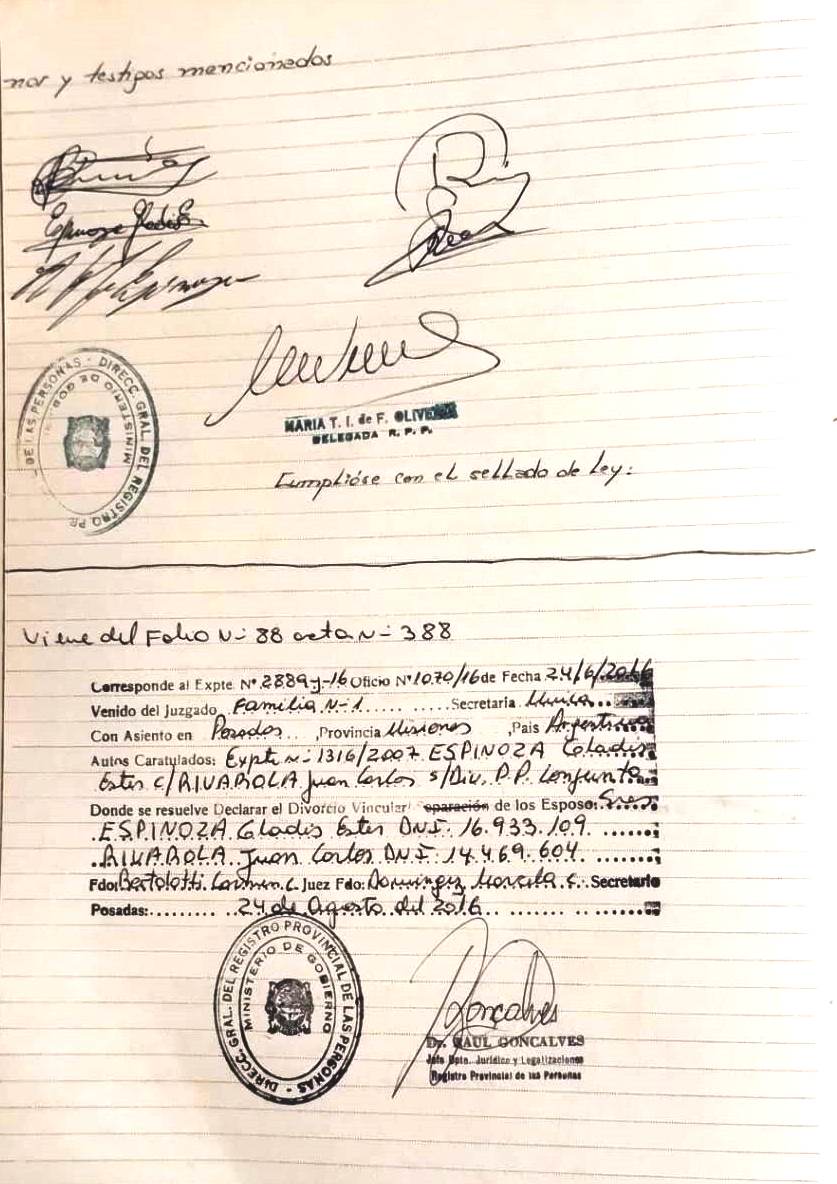 nos y testigos mencionados
Espinoza Gladis E
Espinoza
DIRECC. GRAL. DEL REGISTRO PR DE LAS PERSONAS
MINISTERIO DE GOB
MARIA T. I. de F. OLIVEIRA
DELEGADA R. P. P.
Cumplióse con el sellado de Ley:
Viene del Folio N- 88 acta N- 388
Corresponde al Expte Nº 2889-J-16 Oficio Nº 1070/16 de Fecha 24/6/2016
Venido del Juzgado Familia N-1 Secretaria Unica
Con Asiento en Posadas, Provincia Misiones, Pais Argentina
Autos Caratulados: Expte N- 1316/2007 ESPINOZA Gladis
Ester c/ RIVAROLA Juan Carlos s/ Div. P.P. Conjunta
Donde se resuelve Declarar el Divorcio Vincular separación de los Esposo: Sres
ESPINOZA Gladis Ester DNI 16.933.109
RIVAROLA Juan Carlos DNI 14.469.604
Fdo: Bertolotti Carmen C. Juez Fdo: Dominguez Marcela S. Secretario
Posadas: 24 de Agosto del 2016
DIRECC. GRAL. DEL REGISTRO PROVINCIAL DE LAS PERSONAS
MINISTERIO DE GOBIERNO
Goncalves
Dr. RAUL GONCALVES
Jefe Dpto. Jurídico y Legalizaciones
Registro Provincial de las Personas